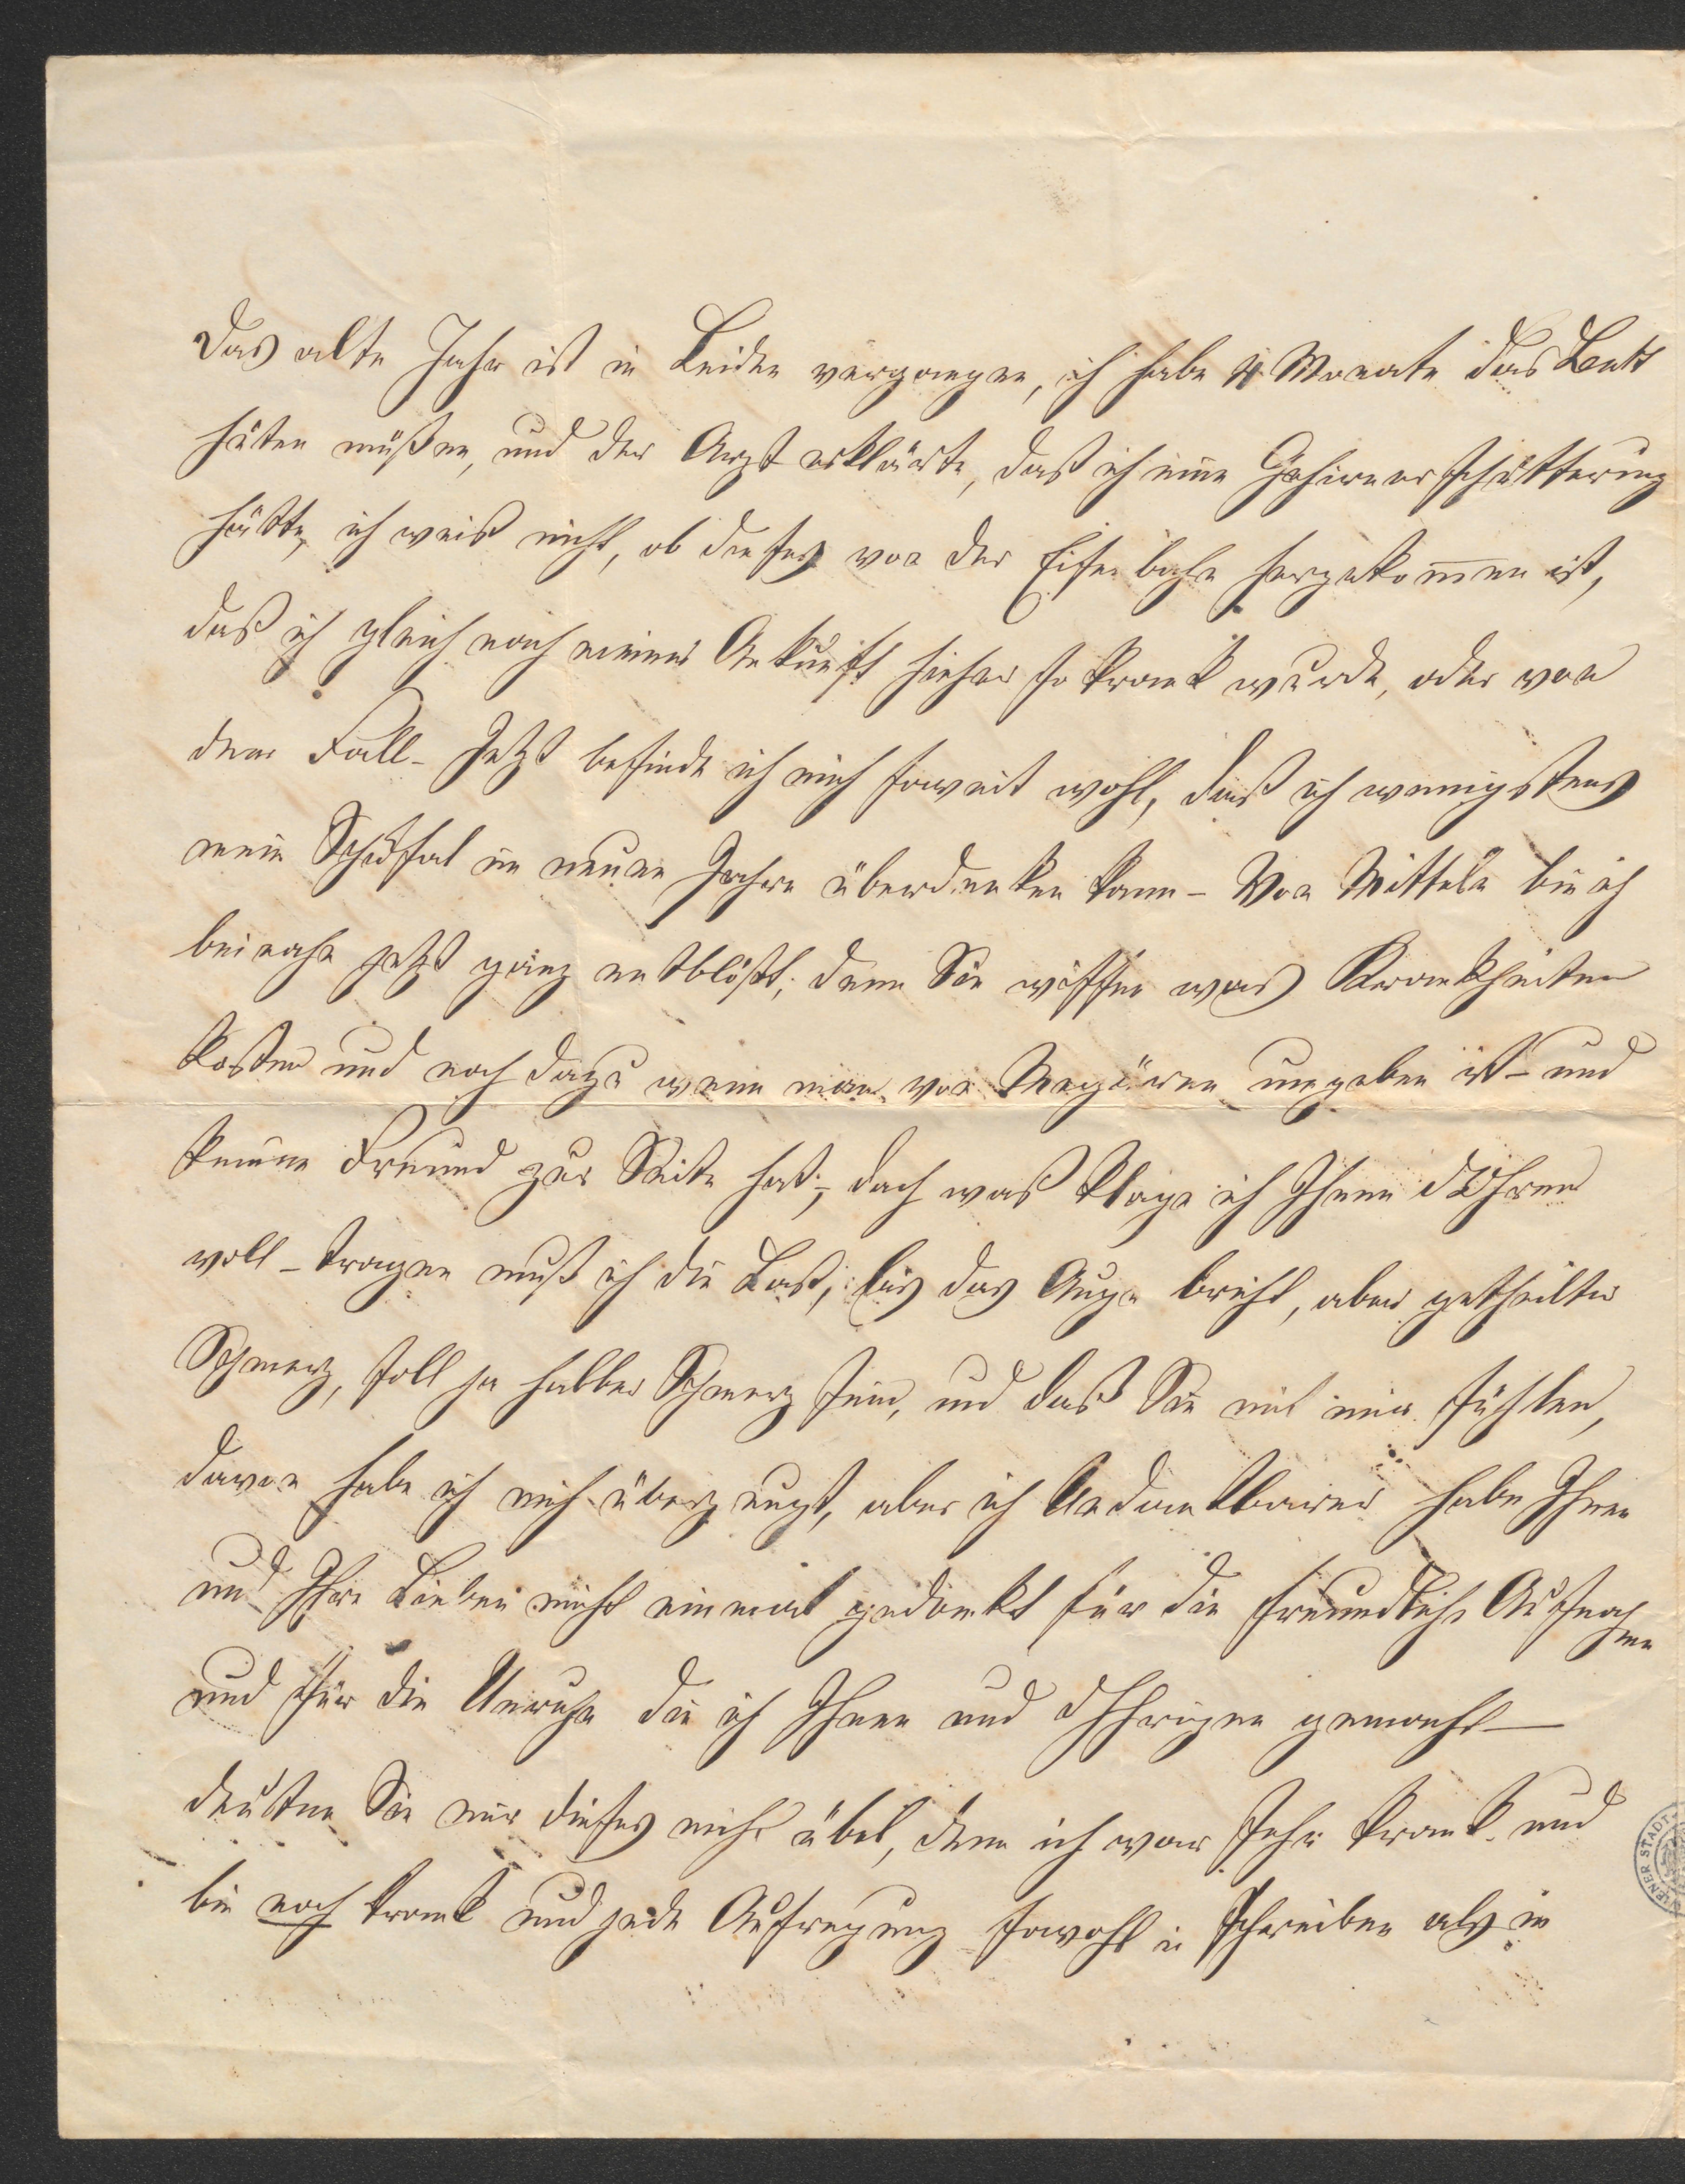 Das alte Jahr ist in Leiden vergangen, ich habe 4 Monate das Bett
hüten müßen, und der Arzt erklärte, daß ich eine Gehirnerschütterung
hätte, ich weiß nicht, ob dieses von der Eisenbahn hergekommen ist,
daß ich gleich nach meiner Ankunft hieher so krank wurde, oder von
dem Fall – Jetzt befinde ich mich soweit wohl, daß ich wenigstens
mein Schicksal im neuen Jahre überdenken kann – Von Mitteln bin ich
beinahe jetzt ganz entblößt; denn Sie wissen was Krankheiten
kosten und noch dazu wenn man von Megären umgeben ist – und
keinen Freund zur Seite hat; – doch was klage ich Ihnen d Ohren
voll – tragen muß ich die Last, bis das Auge bricht, aber getheilter
Schmerz, soll ja halber Schmerz sein, und daß Sie mit mir fühlen,
davon habe ich mich überzeugt, aber ich Undankbarer habe Ihnen
und Ihre Lieben nicht einmal gedankt für die freundliche Aufnahme
und für die Unruhe die ich Ihnen und d Ihrigen gemacht –
deuten Sie mir dieses nicht übel, denn ich war sehr krank und
bin noch krank und jede Aufregung sowohl in Schreiben als in
WIENER STADT